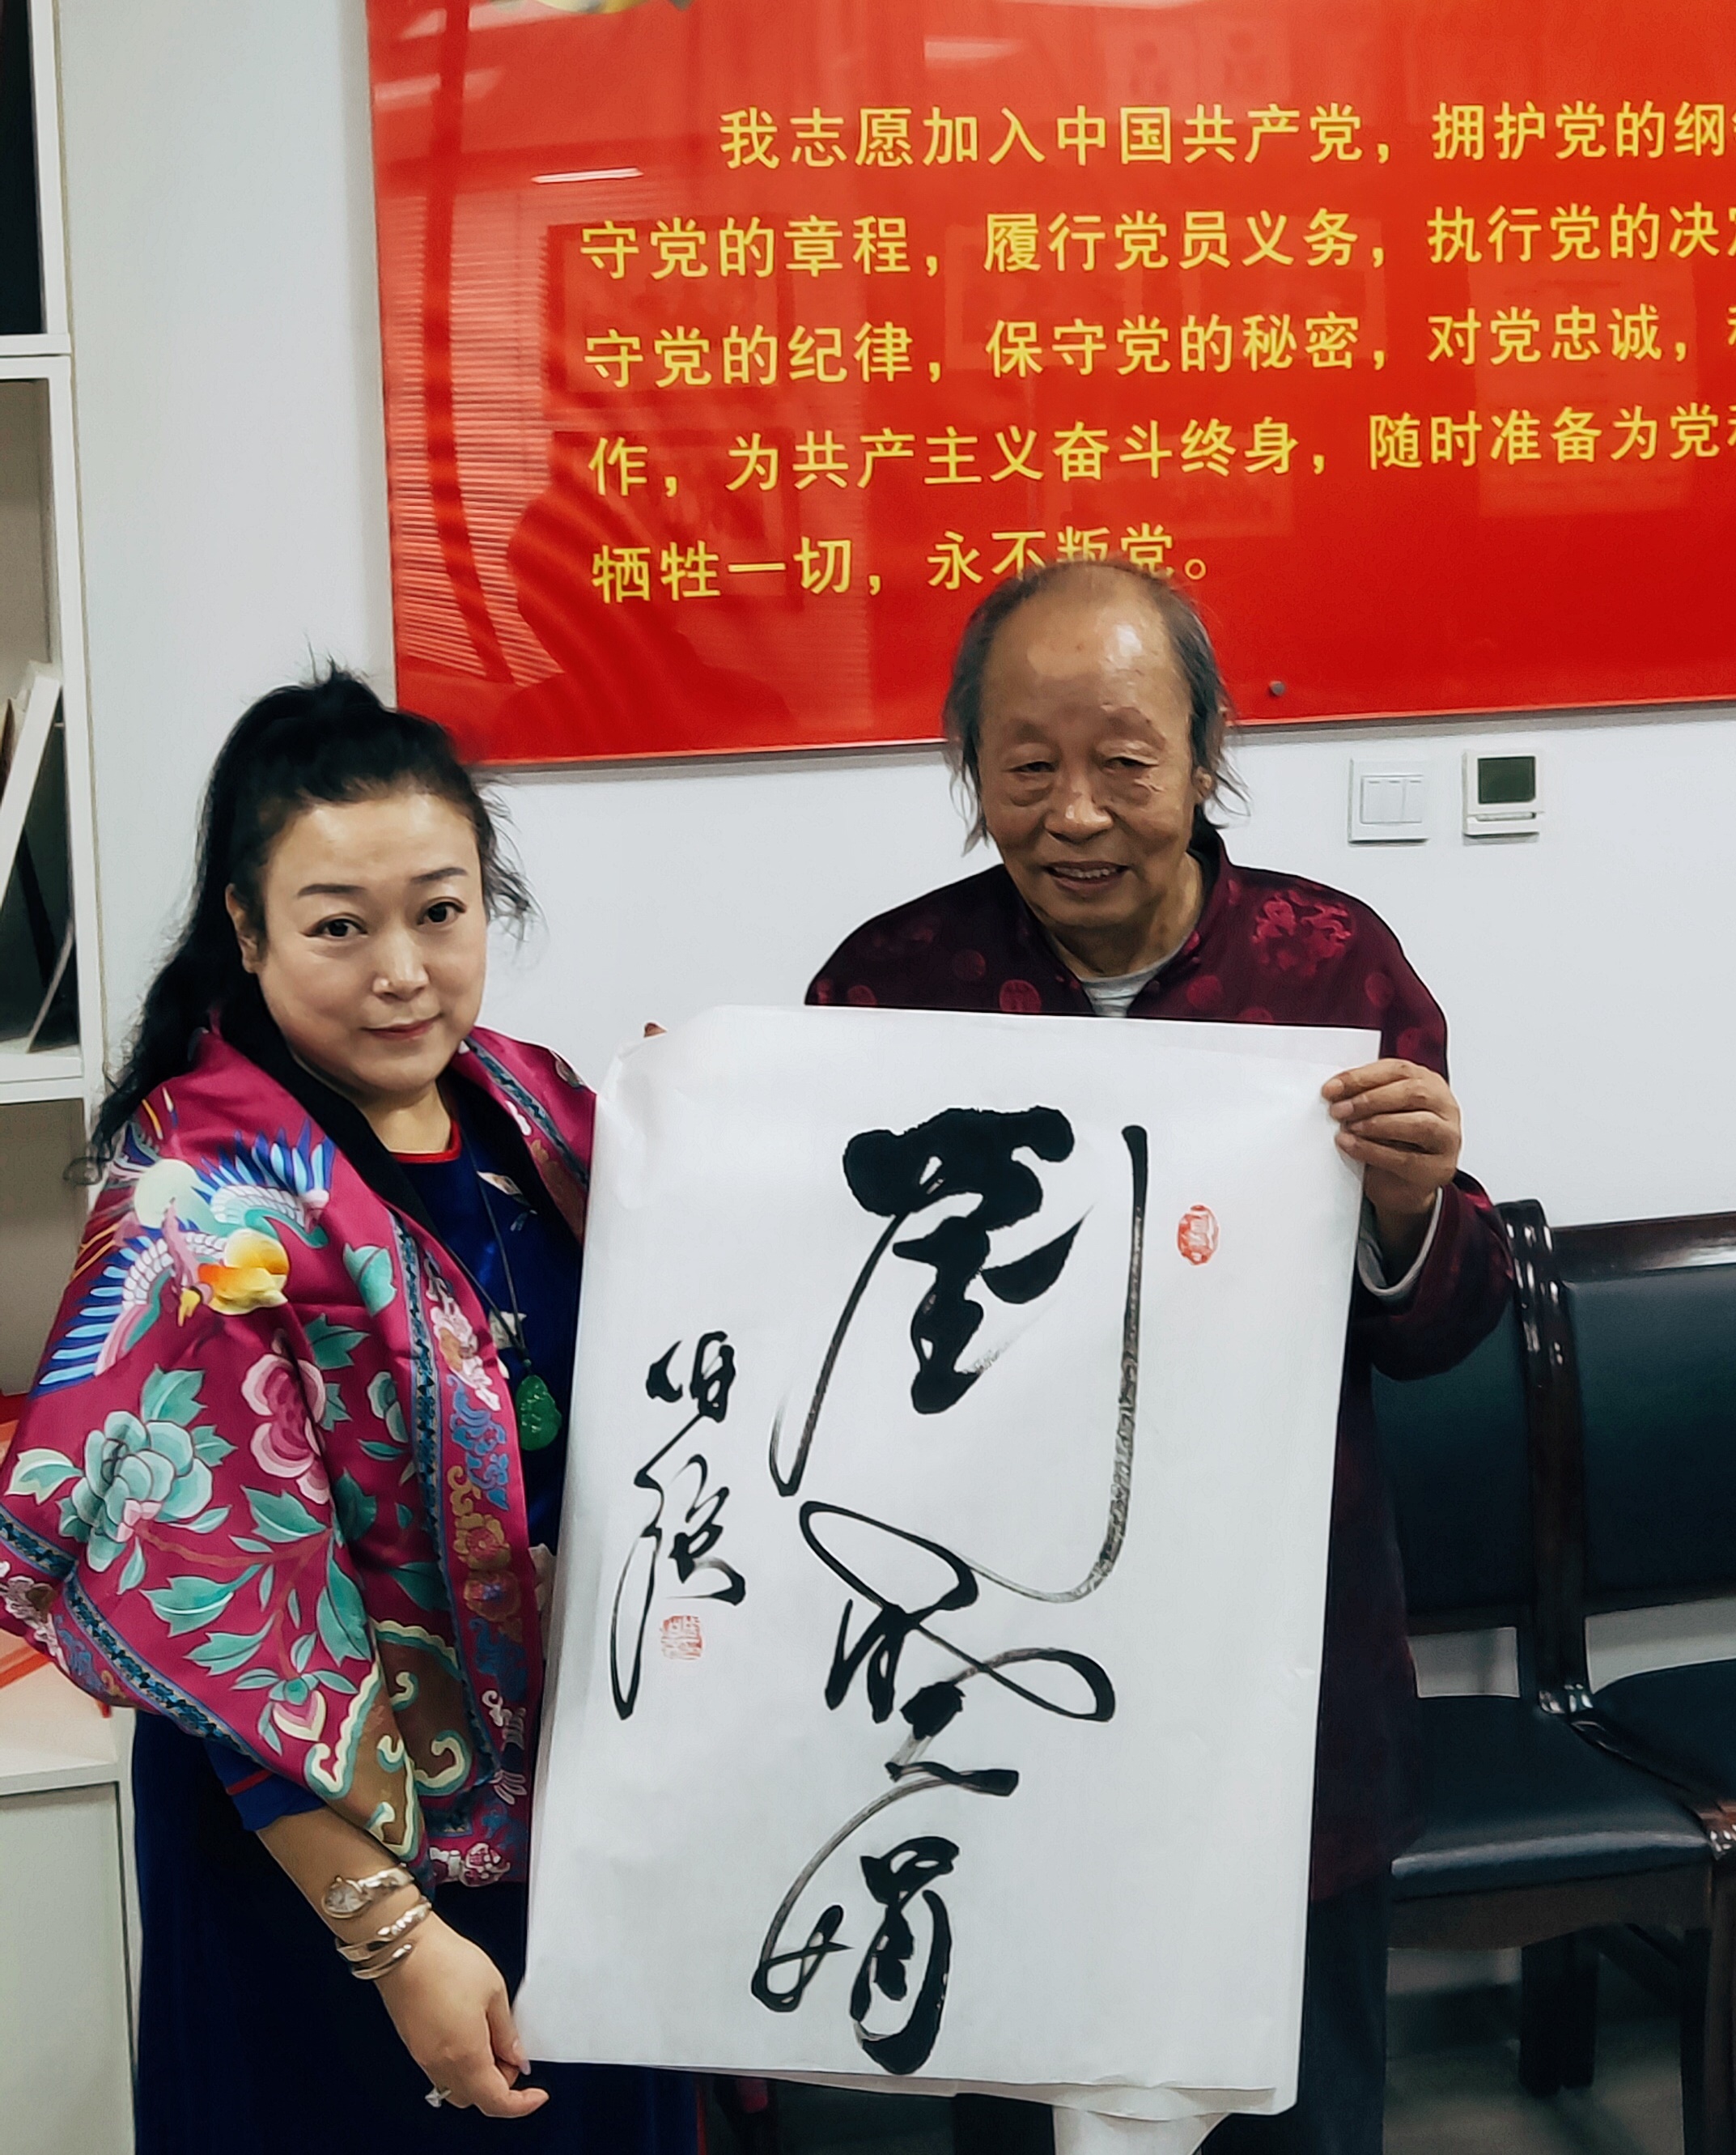 我志愿加入中国共产党，拥护党的纲
守党的章程，履行党员义务，执行党的决
守党的纪律，保守党的秘密，对党忠诚，
作，为共产主义奋斗终身，随时准备为党
牺牲一切，永不叛党。
劉
娟